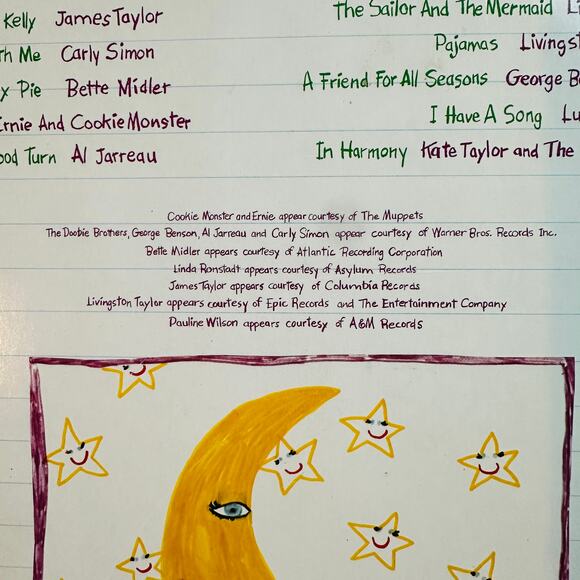 Kelly James Taylor
The Sailor And The Mermaid
Me Carly Simon
Pajamas
Pie Bette Midler
A Friend For All Seasons George
Ernie And Cookie Monster
I Have A Song
Turn Al Jarreau
In Harmony Kate Taylor and The
Cookie Monster and Ernie appear courtesy of The Muppets
The Doobie Brothers, George Benson, Al Jarreau and Carly Simon appear courtesy of Warner Bros. Records Inc.
Bette Midler appears courtesy of Atlantic Recording Corporation
Linda Ronstadt appears courtesy of Asylum Records
James Taylor appears courtesy of Columbia Records
Livingston Taylor appears courtesy of Epic Records and The Entertainment Company
Pauline Wilson appears courtesy of A&M Records